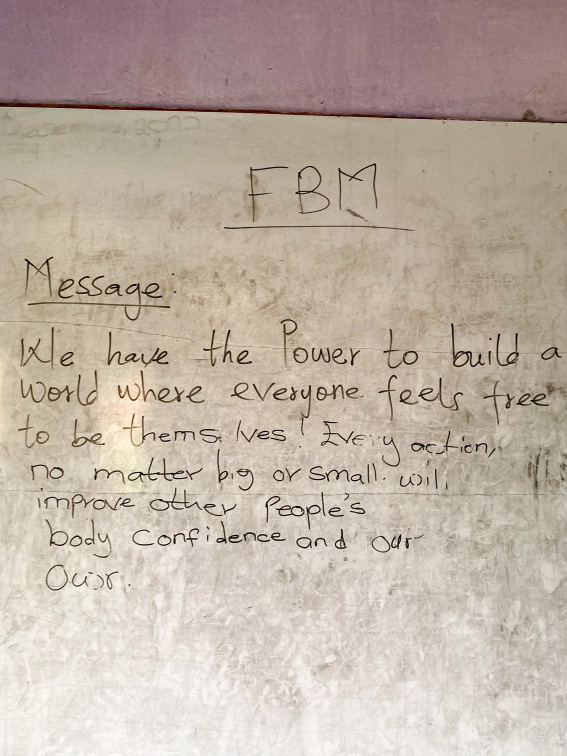 FBM
Message:
We have the Power to build a
world where everyone feels free
to be themselves! Every action,
no matter big or small. will
improve other People's
body confidence and our